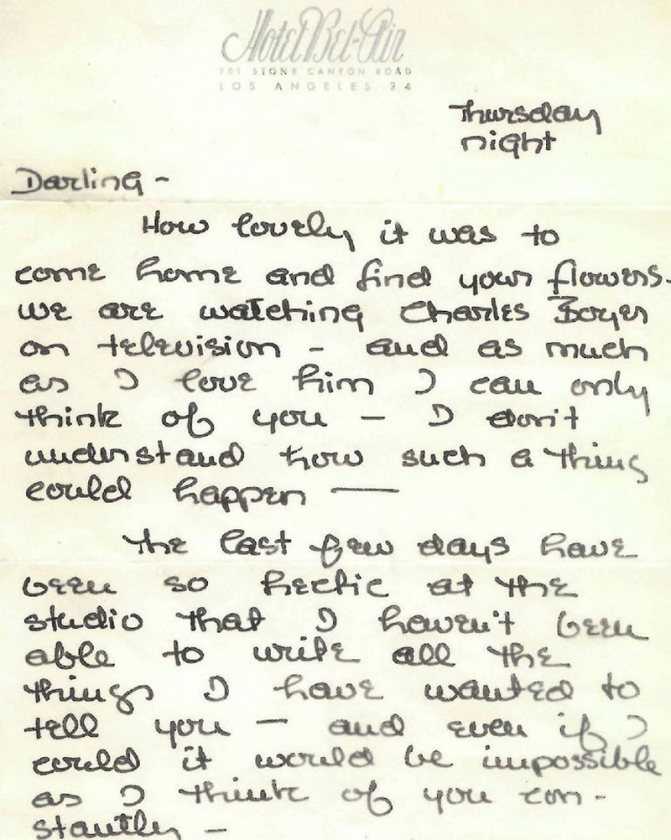 Hotel Bel-Air
701 STONE CANYON ROAD
LOS ANGELES 24
Thursday
night
Darling -
How lovely it was to
come home and find your flowers.
We are watching Charles Boyer
on television - and as much
as I love him I can only
think of you - I don't
understand how such a thing
could happen —
The last few days have
been so hectic at the
studio that I haven't been
able to write all the
things I have wanted to
tell you - and even if I
could it would be impossible
as I think of you con-
stantly -